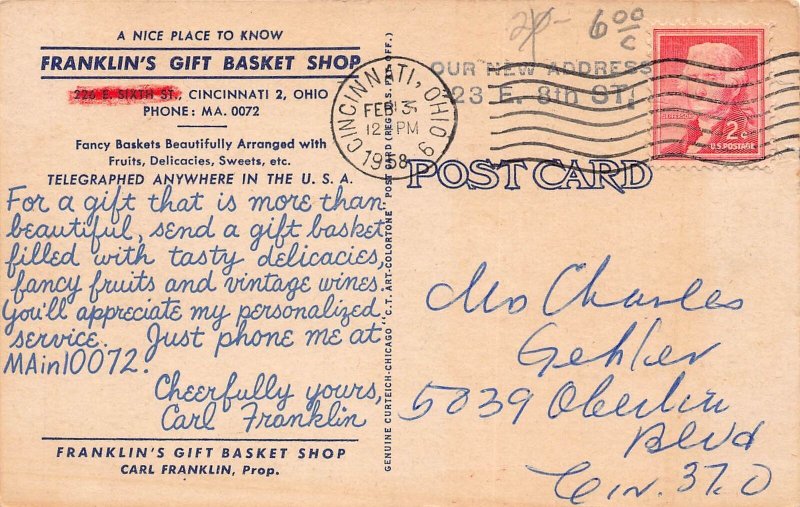 A NICE PLACE TO KNOW
FRANKLIN'S GIFT BASKET SHOP
226 E. SIXTH ST., CINCINNATI 2, OHIO
PHONE: MA. 0072
Fancy Baskets Beautifully Arranged with
Fruits, Delicacies, Sweets, etc.
TELEGRAPHED ANYWHERE IN THE U. S. A.
For a gift that is more than
beautiful, send a gift basket
filled with tasty delicacies,
fancy fruits and vintage wines.
You'll appreciate my personalized
service. Just phone me at
MAin10072.
Cheerfully yours,
Carl Franklin
FRANKLIN'S GIFT BASKET SHOP
CARL FRANKLIN, Prop.
GENUINE CURTEICH-CHICAGO "C.T. ART-COLORTONE" POST CARD (REG. U.S. PAT. OFF.)
CINCINNATI, OHIO 9
FEB 3
12 PM
1958
OUR NEW ADDRESS
23 E. 8th ST.
6 00
c
JEFFERSON
2¢
U.S. POSTAGE
POST CARD
Mrs Charles
Gehler
5039 Oberlin
Blvd
Cin. 37. O